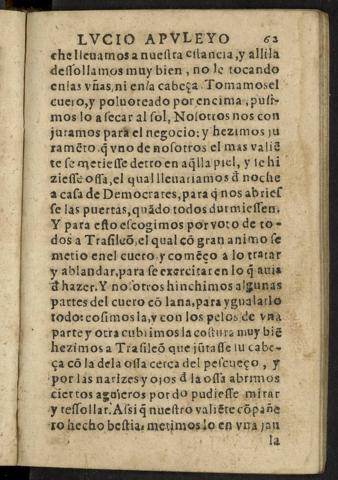 LVCIO APVLEYO 62
che lleuamos a nuestra estancia, y alli la
dessollamos muy bien, no le tocando
en las vñas, ni en la cabeça Tomamos el
cuero, y poluoreado por encima, pusi-
mos lo a secar al sol, Nosotros nos con
juramos para el negocio: y hezimos ju
ramẽto. q̃ vno de nosotros el mas valiẽ
te se metiesse dẽtro en aq̃lla piel, y se hi
ziesse ossa, el qual lleuariamos d̃ noche
a casa de Democrates, para q̃ nos abries
se las puertas, quãdo todos durmiessen.
Y para esto escogimos por voto de to-
dos a Trasileõ, el qual cõ gran animo se
metio en el cuero, y comẽço a lo tratar
y ablandar, para se exercitar en lo q̃ auia
d̃ hazer. Y nosotros hinchimos algunas
partes del cuero cõ lana, para ygualarlo
todo: cosimos la, y con los pelos de vna
parte y otra cubrimos la costura muy biẽ
hezimos a Trasileõ que jũtasse su cabe-
ça cõ la dela ossa cerca del pescueço, y
por las narizes y ojos d̃ la ossa abrimos
ciertos agujeros por do pudiesse mirar
y ressollar. Assi q̃ nuestro valiẽte cõpañe
ro hecho bestia, metimos lo en vna jau
la